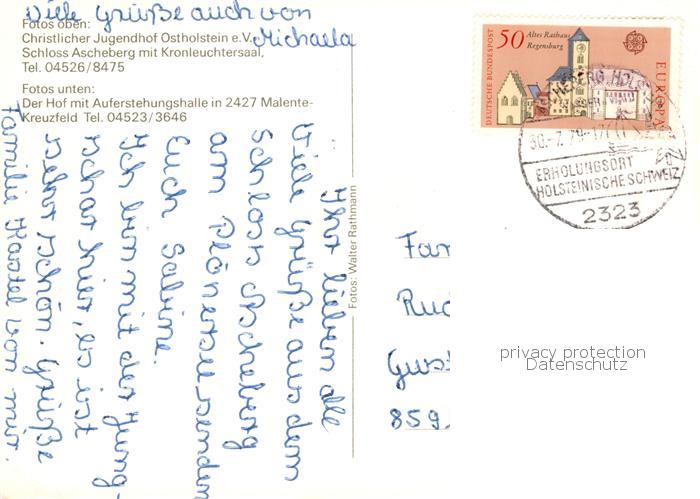 Viele Grüße auch von
Michaela
Fotos oben:
Christlicher Jugendhof Ostholstein e.V.
Schloss Ascheberg mit Kronleuchtersaal,
Tel. 04526/8475
Fotos unten:
Der Hof mit Auferstehungshalle in 2427 Malente-
Kreuzfeld Tel. 04523/3646
Ihr lieben alle
Viele Grüße aus dem
Schloss Ascheberg
am Plönersee senden
Euch Sabine.
Ich bin mit der Jung-
schar hier, es ist
sehr schön. Grüße
Familie Hastel von mir.
Fotos: Walter Rathmann
DEUTSCHE BUNDESPOST
50
Altes Rathaus
Regensburg
EUROPA
30.-7.79-17
ERHOLUNGSORT
HOLSTEINISCHE SCHWEIZ
2323
Fam
Rud
Gus
859
privacy protection
Datenschutz